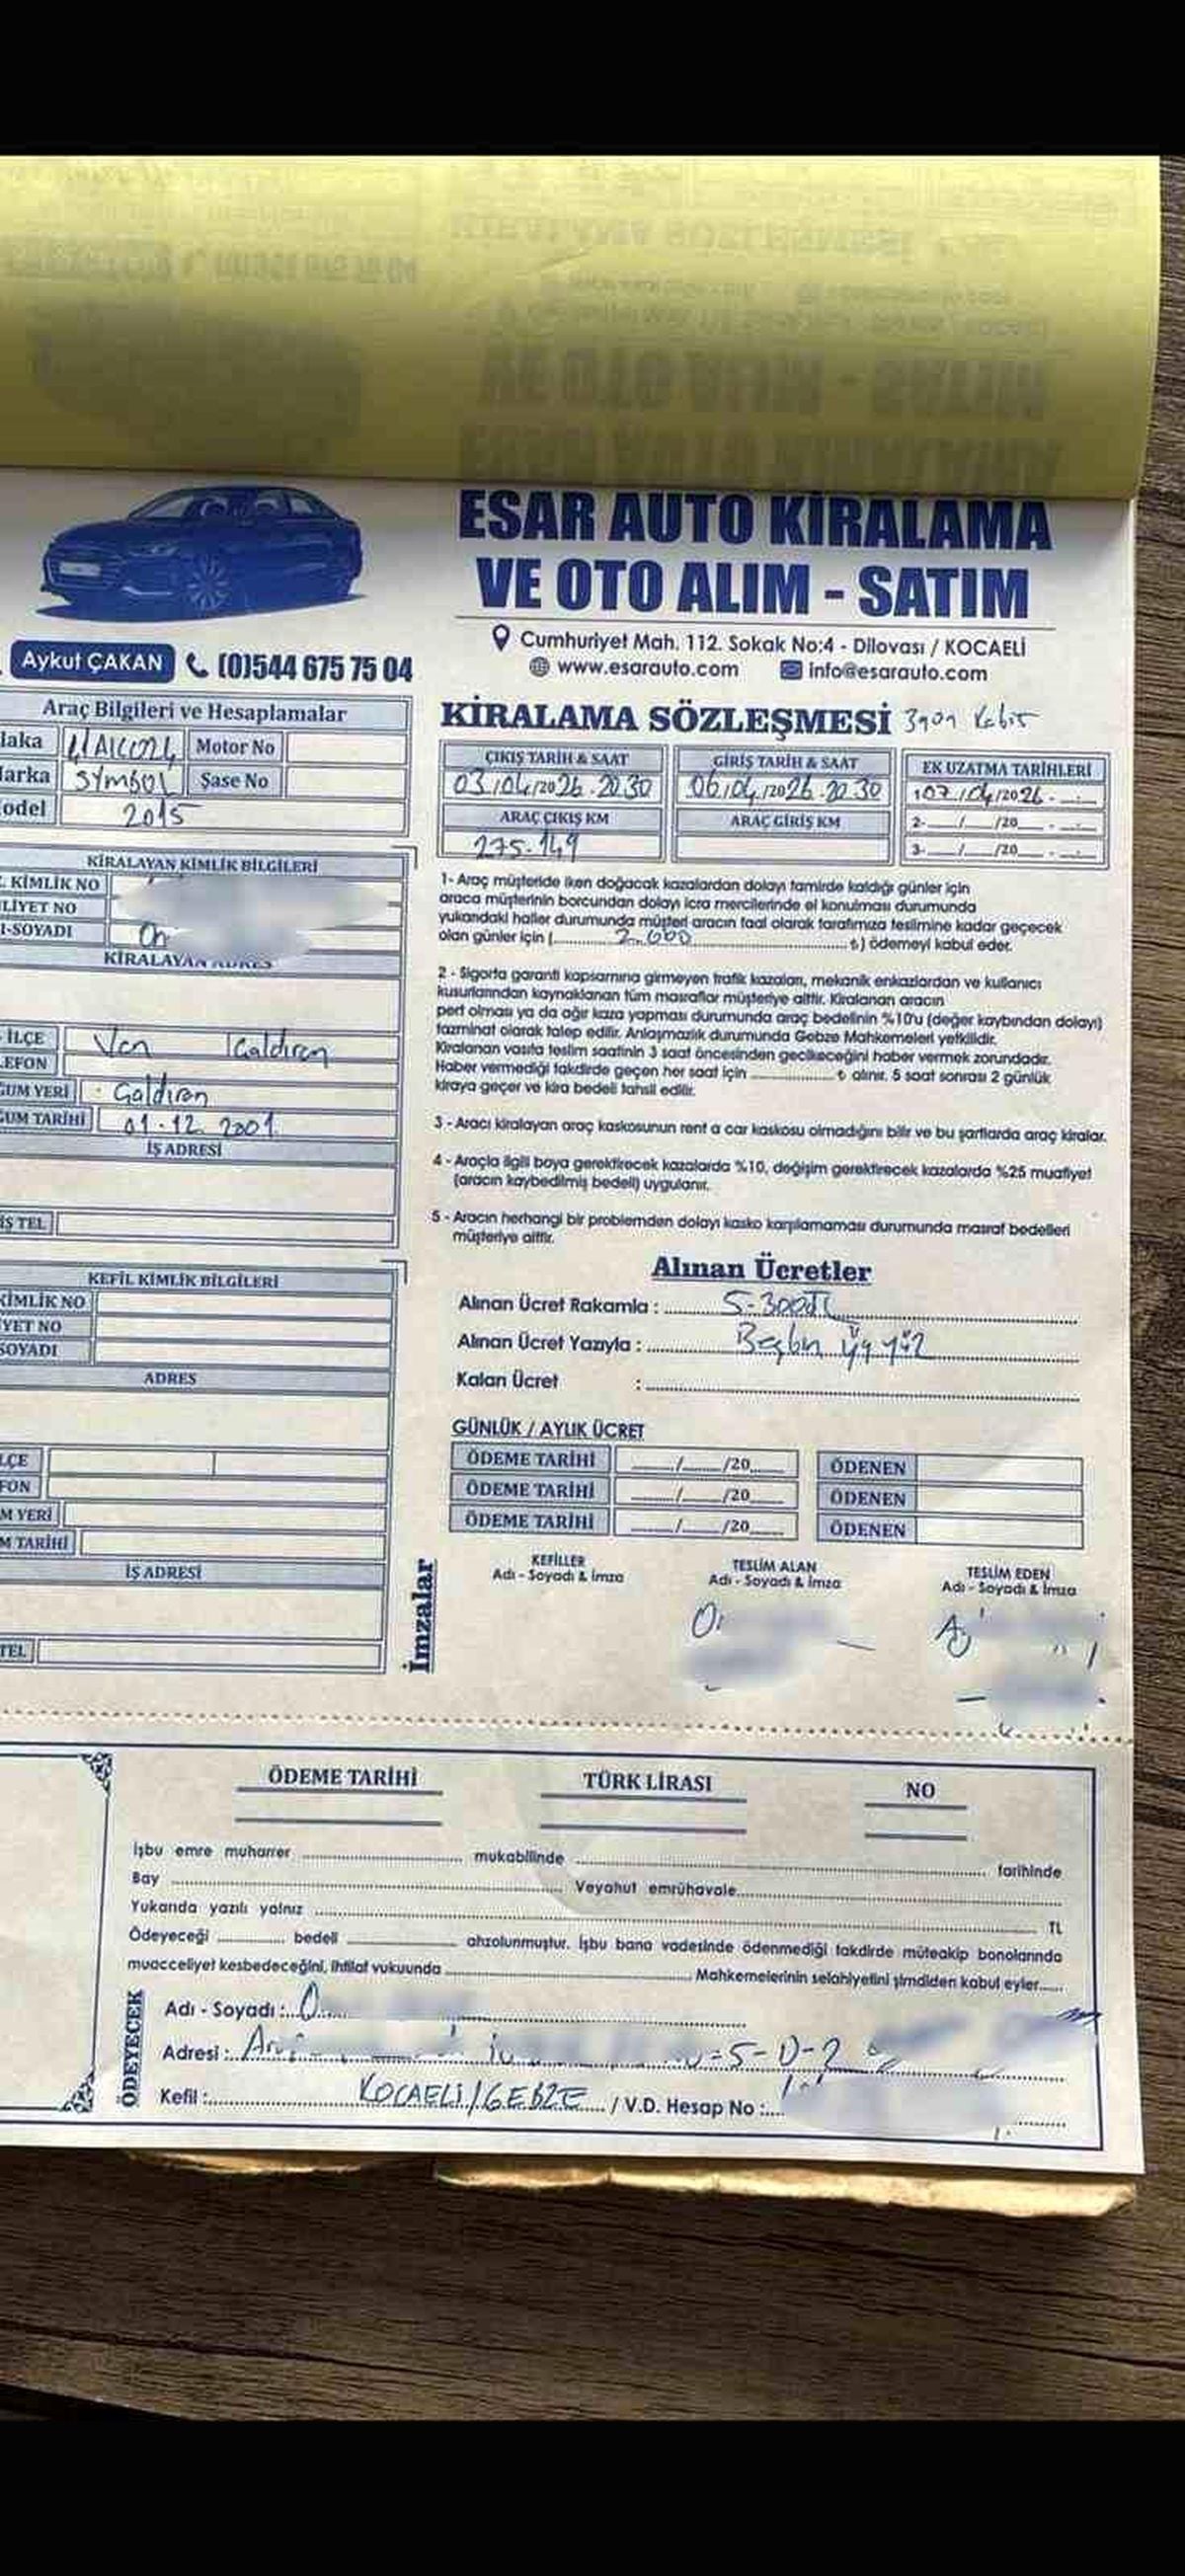 ESAR AUTO KİRALAMA
VE OTO ALIM - SATIM
Cumhuriyet Mah. 112. Sokak No:4 - Dilovası / KOCAELİ
www.esarauto.com info@esarauto.com
Aykut ÇAKAN (0)544 675 75 04
Araç Bilgileri ve Hesaplamalar
laka Motor No
arka SYMBOL Şase No
odel 2015
KİRALAYAN KİMLİK BİLGİLERİ
. KİMLİK NO
LİYET NO
I-SOYADI
KİRALAYAN ADRES
İLÇE Van Çaldıran
EFON
ĞUM YERİ Çaldıran
ĞUM TARİHİ 01.12.2001
İŞ ADRESİ
İŞ TEL
KEFİL KİMLİK BİLGİLERİ
KİMLİK NO
YET NO
SOYADI
ADRES
LÇE
FON
M YERİ
M TARİHİ
İŞ ADRESİ
TEL
KİRALAMA SÖZLEŞMESİ 3gün
ÇIKIŞ TARİH & SAAT GİRİŞ TARİH & SAAT EK UZATMA TARİHLERİ
03/04/2026.20.30 06/04/2026.20.30 1 07/04/2026 -
ARAÇ ÇIKIŞ KM ARAÇ GİRİŞ KM 2- / /20 -
275.149 3- / /20 -
1- Araç müşteride iken doğacak kazalardan dolayı tamirde kaldığı günler için
araca müşterinin borcundan dolayı icra mercilerinde el konulması durumunda
yukarıdaki haller durumunda müşteri aracın faal olarak tarafımıza teslimine kadar geçecek
olan günler için (........ 2.000 ........₺) ödemeyi kabul eder.
2 - Sigorta garanti kapsamına girmeyen trafik kazaları, mekanik enkazlardan ve kullanıcı
kusurlarından kaynaklanan tüm masraflar müşteriye aittir. Kiralanan aracın
pert olması ya da ağır kaza yapması durumunda araç bedelinin %10'u (değer kaybından dolayı)
tazminat olarak talep edilir. Anlaşmazlık durumunda Gebze Mahkemeleri yetkilidir.
Kiralanan vasıta teslim saatinin 3 saat öncesinden gecikeceğini haber vermek zorundadır.
Haber vermediği takdirde geçen her saat için ................₺ alınır. 5 saat sonrası 2 günlük
kiraya geçer ve kira bedeli tahsil edilir.
3 - Aracı kiralayan araç kaskosunun rent a car kaskosu olmadığını bilir ve bu şartlarda araç kiralar.
4 - Araçla ilgili boya gerektirecek kazalarda %10, değişim gerektirecek kazalarda %25 muafiyet
(aracın kaybedilmiş bedeli) uygulanır.
5 - Aracın herhangi bir problemden dolayı kasko karşılamaması durumunda masraf bedelleri
müşteriye aittir.
Alınan Ücretler
Alınan Ücret Rakamla : 5.300TL
Alınan Ücret Yazıyla : Beşbin üç yüz
Kalan Ücret :
GÜNLÜK / AYLIK ÜCRET
ÖDEME TARİHİ ....../....../20...... ÖDENEN
ÖDEME TARİHİ ....../....../20...... ÖDENEN
ÖDEME TARİHİ ....../....../20...... ÖDENEN
İmzalar
KEFİLLER TESLİM ALAN TESLİM EDEN
Adı - Soyadı & İmza Adı - Soyadı & İmza Adı - Soyadı & İmza
ÖDEME TARİHİ TÜRK LİRASI NO
İşbu emre muharrer .......... mukabilinde .......... tarihinde
Bay .......... Veyahut emrühavale..........
Yukarıda yazılı yalnız .......... TL
Ödeyeceği .......... bedeli .......... ahzolunmuştur. İşbu bana vadesinde ödenmediği takdirde müteakip bonolarında
muacceliyet kesbedeceğini, ihtilaf vukuunda .......... Mahkemelerinin selahiyetini şimdiden kabul eyler......
ÖDEYECEK
Adı - Soyadı :
Adresi :
Kefil : KOCAELİ/GEBZE / V.D. Hesap No :